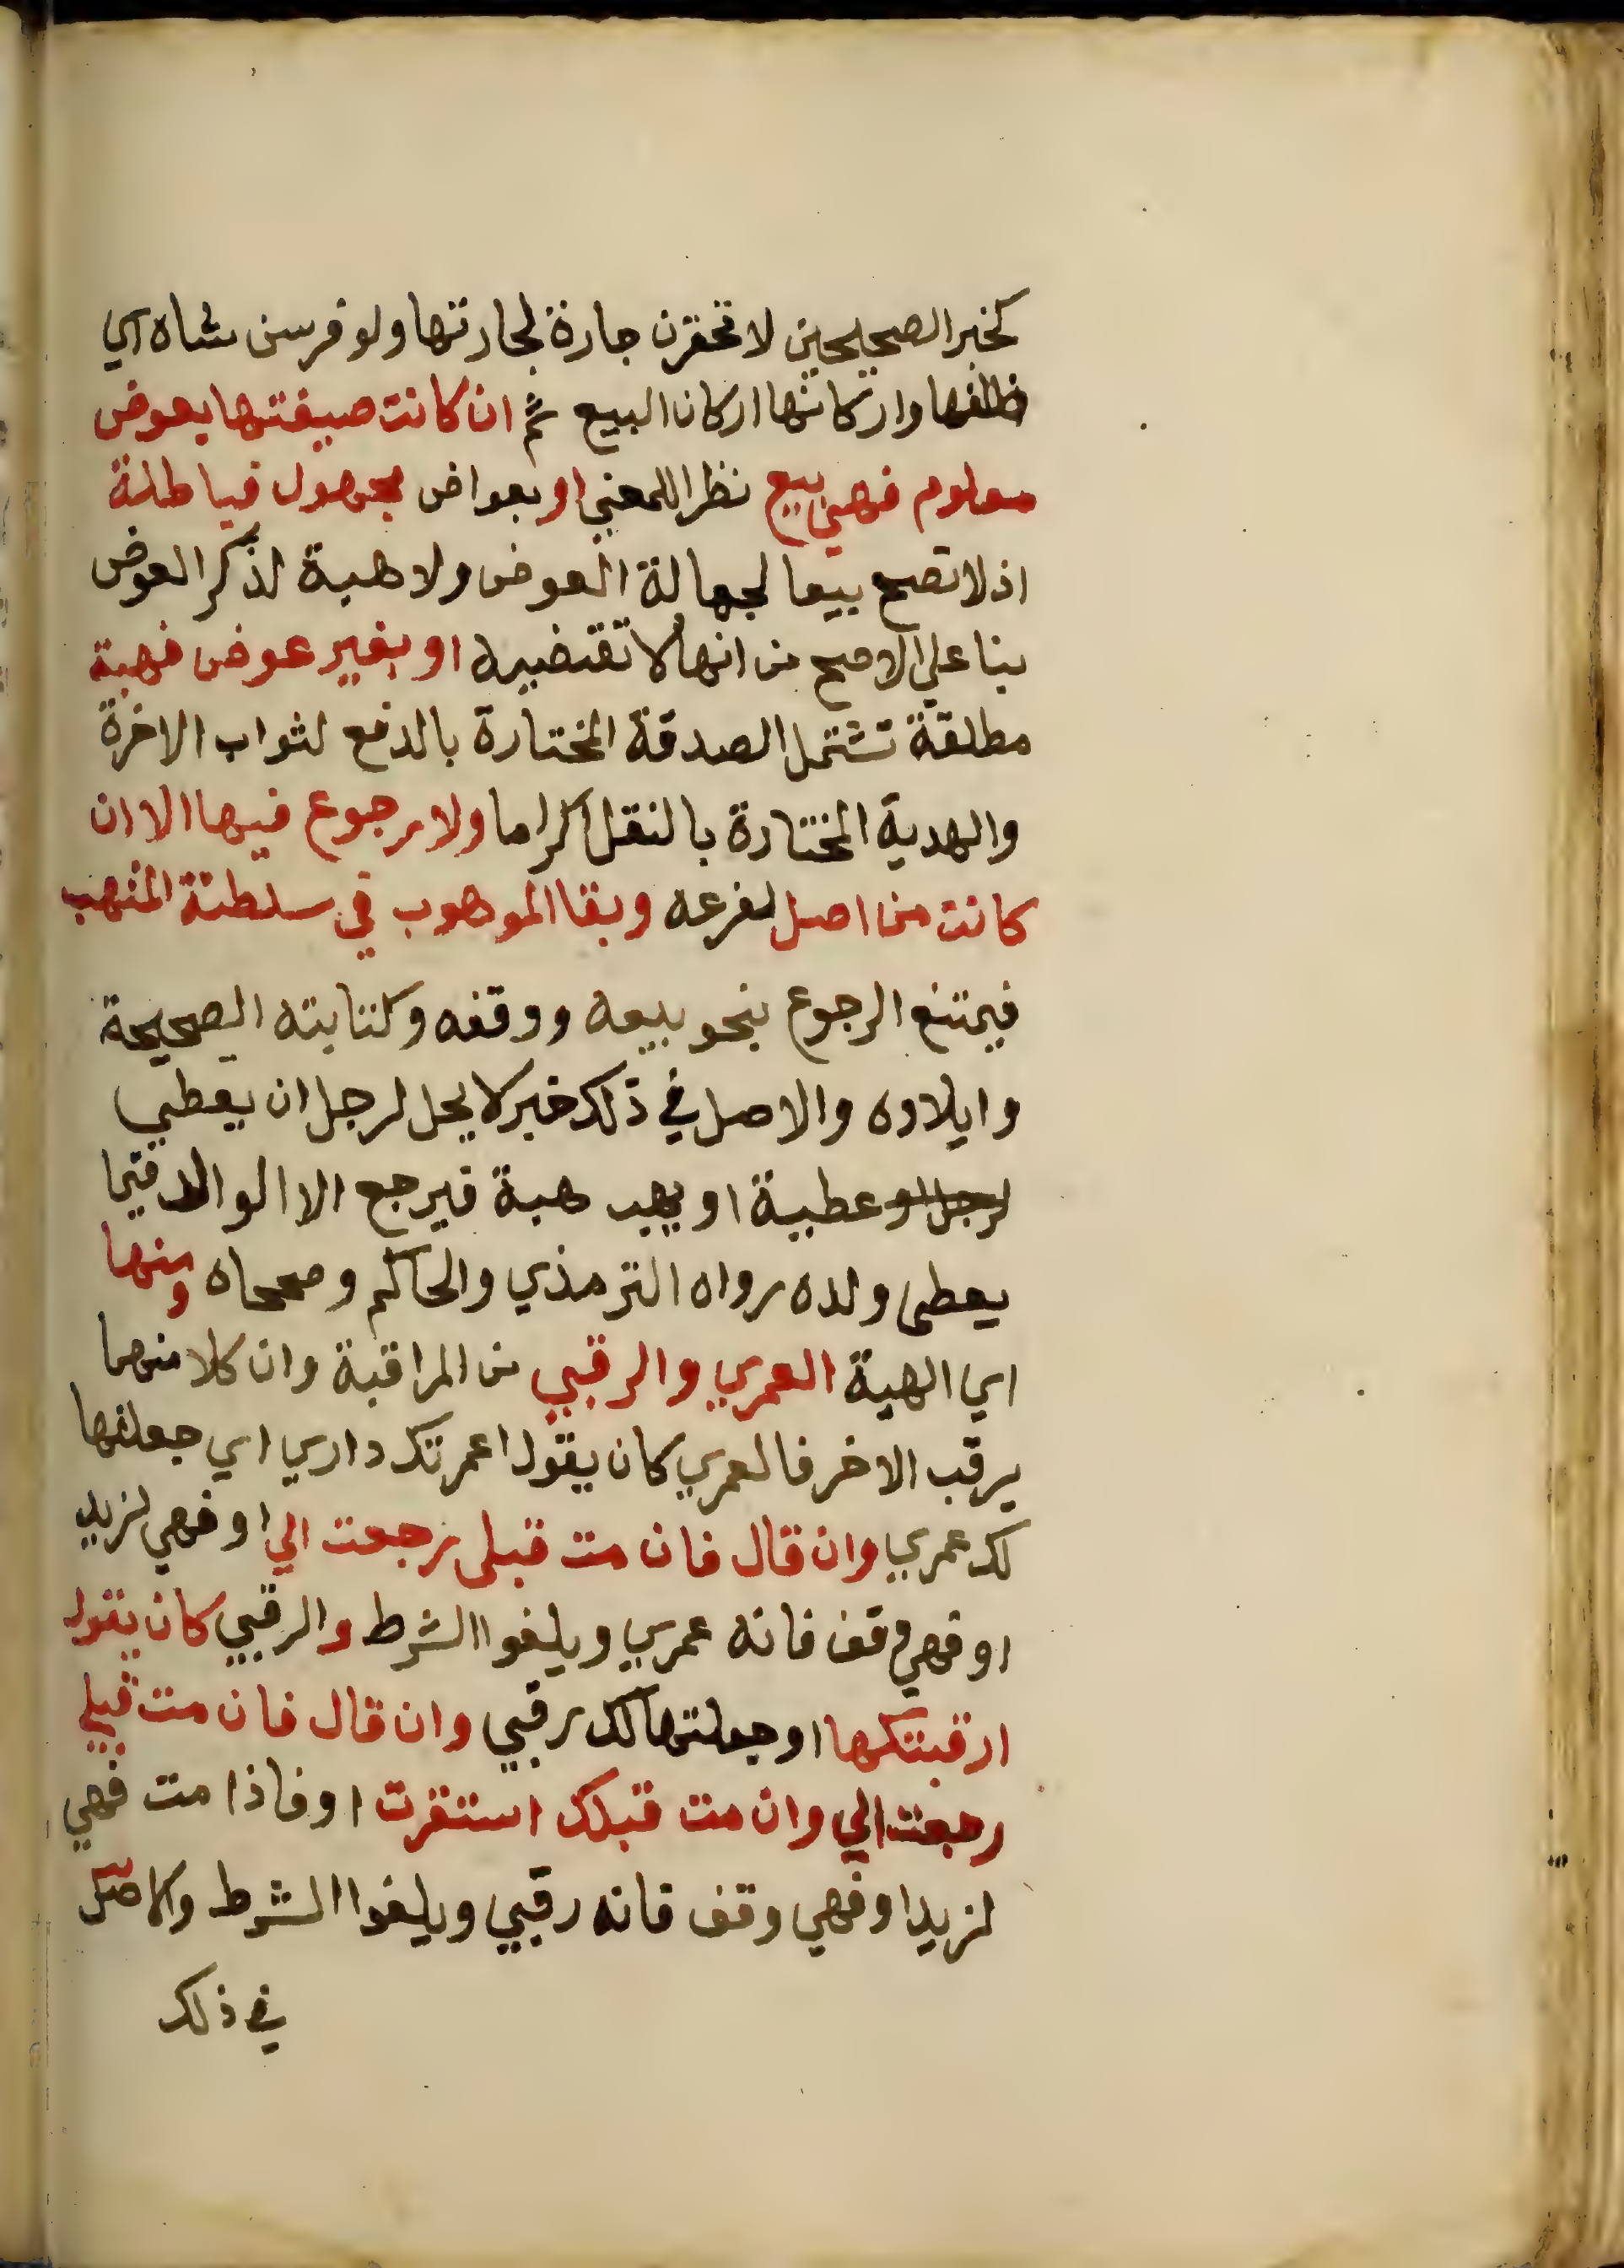 كخبر الصحيحين لا تحقرن جارة لجارتها ولو فرسن شاه اي
ظلفها واركانها اركان البيع ثم ان كانت صيغتها بعوض
معلوم فهي بيع نظرا للمعني او بعواض مجهول فباطلة
اذ لا تصح بيعا لجهالة العوض ولا هبة لذكر العوض
بنا علي الاصح من انها لا تقتضيه او بغير عوض فهبة
مطلقة تشتمل الصدقة المختارة بالدفع لثواب الاخرة
والهدية المختارة بالنقل اكراما ولا رجوع فيها الا ان
كانت من اصل لفرعه وبقا الموهوب في سلطنة المتهب
فيمتنع الرجوع بنحو بيعه ووقفه وكتابته الصحيحة
وايلاده والاصل في ذلك خبر لا يحل لرجل ان يعطي
لرجل او عطية او يهب هبة فيرجع الا الوالد فيما
يعطى ولده رواه الترمذي والحاكم وصححاه ومنها
اي الهبة العمري والرقبي من المراقبة وان كلا منهما
يرقب الاخر فالعمري كان يقول اعمرتك داري اي جعلتها
لك عمري وان قال فان مت قبلى رجعت الي او فهي لزيد
او فهي وقف فانه عمري ويلغوا الشرط والرقبي كان يقول
ارقبتكها او جعلتها لك رقبي وان قال فان مت قبلي
رجعت الي وان مت قبلك استقرت او فاذا مت فهي
لزيد او فهي وقف فانه رقبي ويلغوا الشرط والاصل
في ذلك